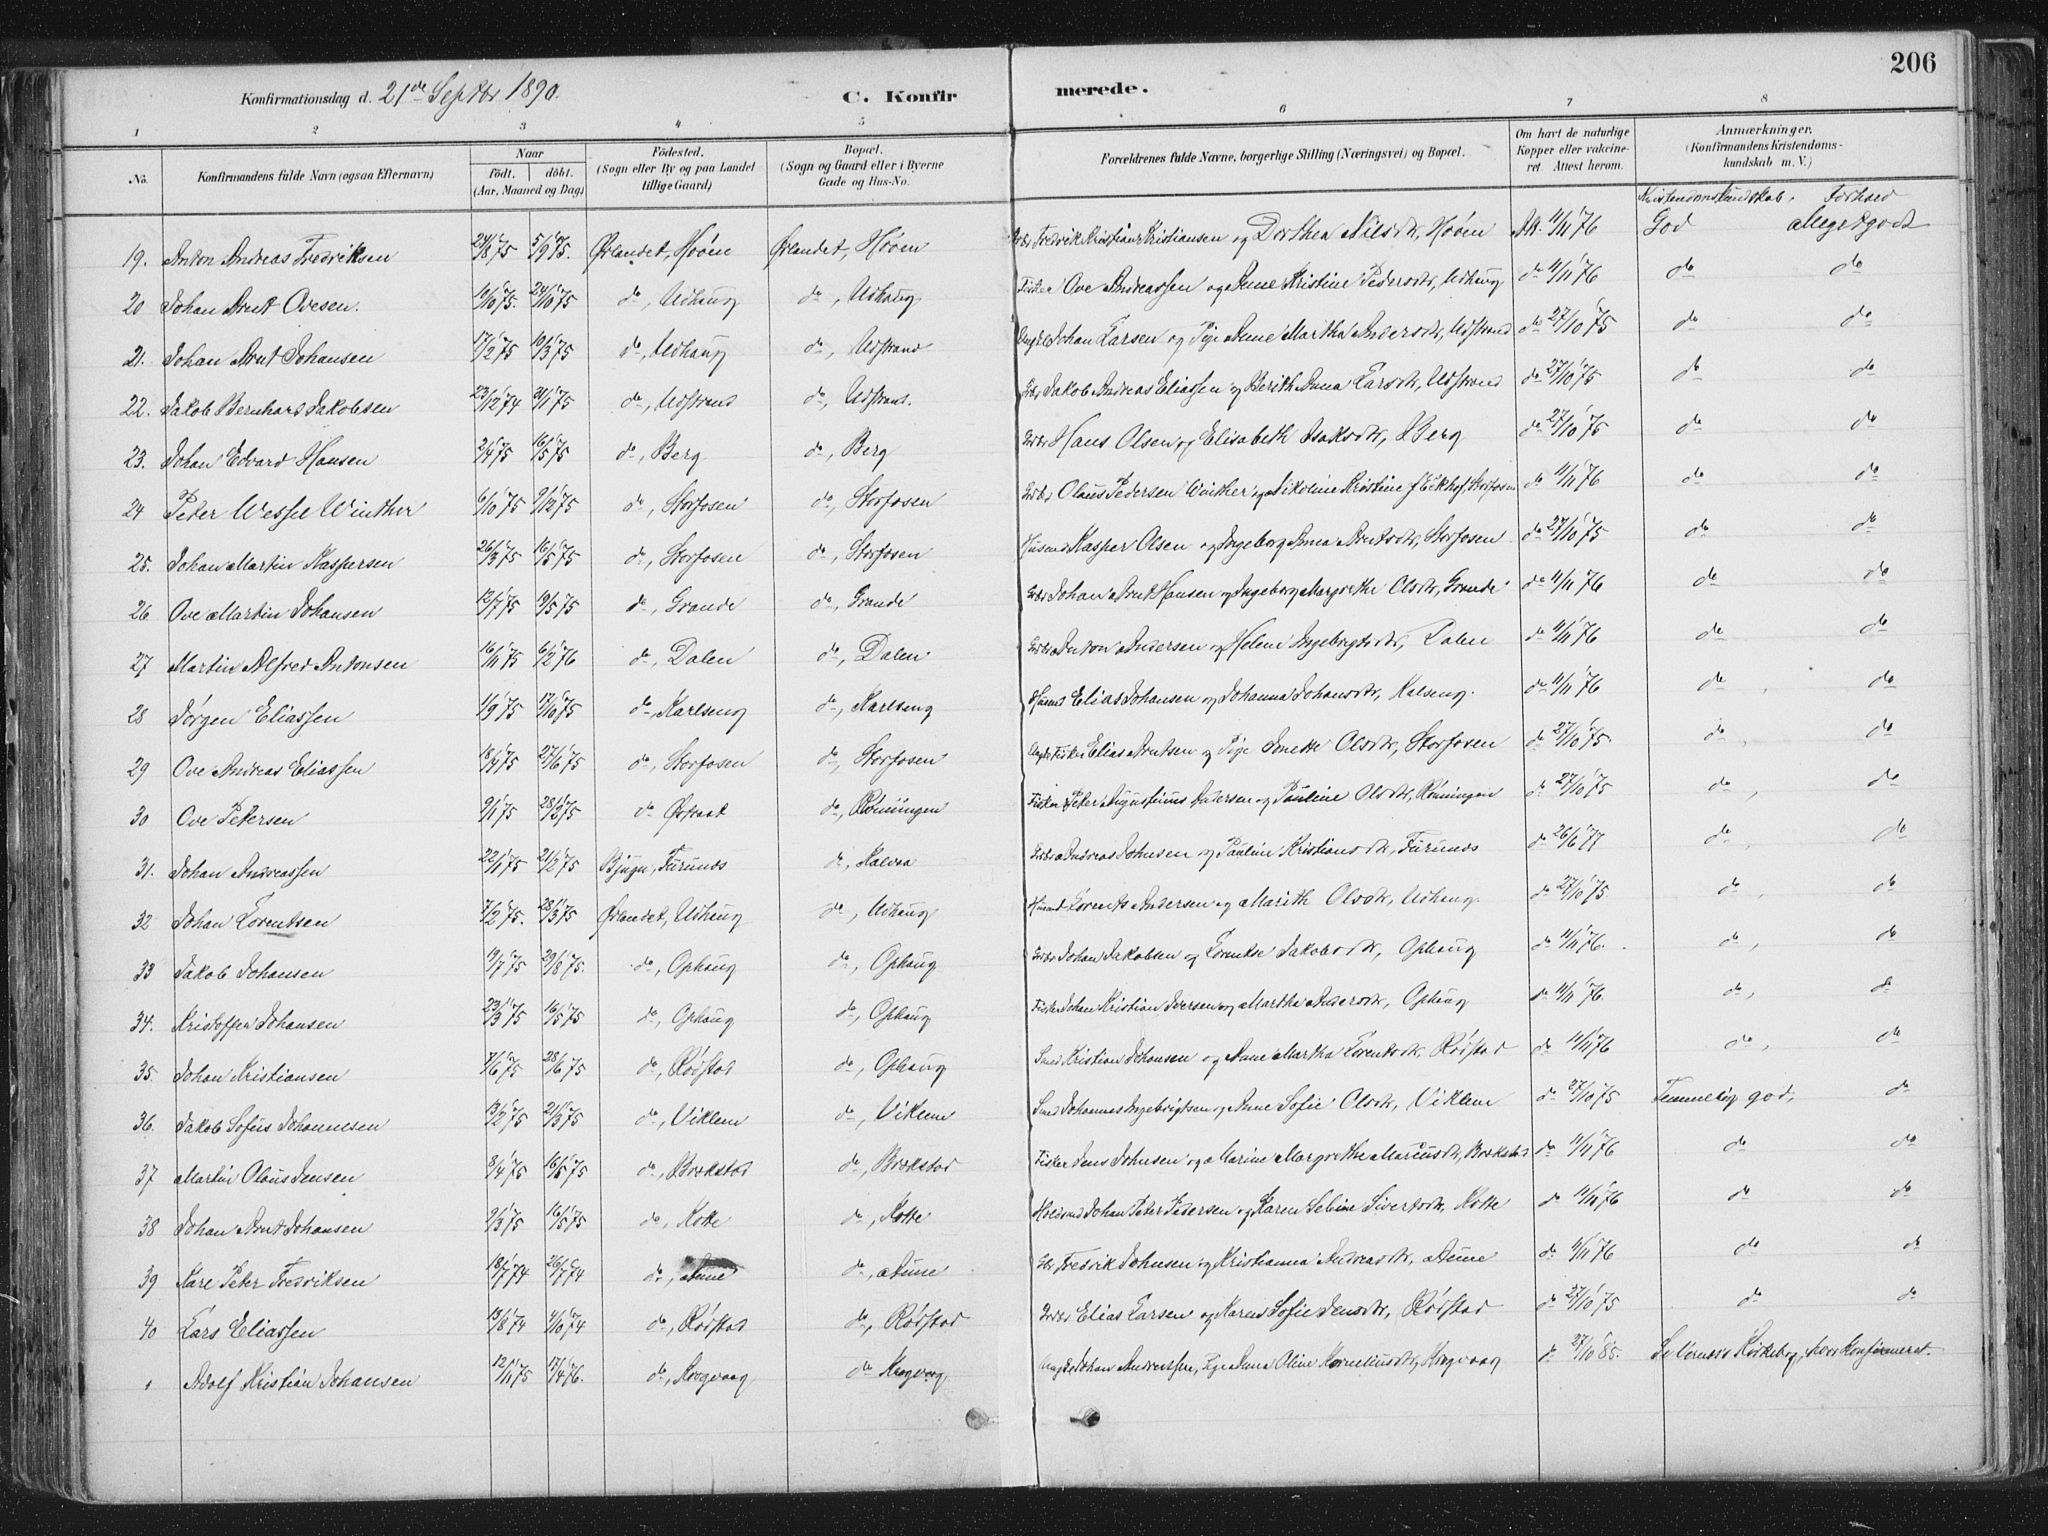 206
Konfirmationsdag d. 21de Septbr 1890.
C. Konfirmerede.
1 2 3 4 5 6 7 8
No.
Konfirmandens fulde Navn (ogsaa Efternavn)
Naar
født. døbt.
(Aar, Maaned og Dag)
Fødested.
(Sogn eller By og paa Landet tillige Gaard)
Bopæl.
(Sogn og Gaard eller i Byerne Gade og Hus-No.
Forældrenes fulde Navne, borgerlige Stilling (Næringsvei) og Bopæl.
Om havt de naturlige Kopper eller vaccineret. Attest herom.
Anmærkninger.
(Konfirmandens Kristendomskundskab m. V.)
Kristendomskundskab. Forhold
19. Anton Andreas Fredriksen 24/8 75 5/9 75. Ørlandet, Hoøen Ørlandet, Hoven Fredrik Kristian Kristiansen og Dorthea Nilsdtr, Hoven 11/11 76 God Megetgodt
20 Johan Arnt Ovesen. 10/10 75. 24/10 75 do, Udhaug do, Udhaug Fisker Ove Andreassen og Anne Kristine Pedersdtr, Udhaug do 11/11 76 do do
21. Johan Arnt Johansen 17/2 75 10/3 75 do, Udhaug do, Udstrand Ungk Johan Larsen og Pige Anne Martha Andersdtr, Udstrand do 27/10 75 do do
22. Jakob Bernhard Jakobsen 23/12 74 31/1 75 do, Udstrand do, Udstrand. Jakob Andreas Eliassen og Berith Anna Larsdtr, Udstrand do 27/10 75 do do
23. Johan Edvard Hansen 2/4 75 16/5 75 do, Berg do, Berg Hans Olsen og Elisabeth Isaksdtr, Berg do 27/10 75 do do
24 Peter Wessel Winther 6/10 75 9/12 75 do, Storfosen do, Storfosen Olaus Pedersen Winther og Nikoline Kristine, Storfosen do 11/11 76 do do
25. Johan Martin Kaspersen 26/3 75 16/5 75 do, Storfosen do, Storfosen Husmd Kasper Olsen og Ingeborg Anna Arntsdtr, Storfosen do 27/10 75 do do
26 Ove Martin Johansen 75 9/5 75 do, Grande do, Grande Johan Arnt Hansen og Ingeborg Margrethe Olsdtr, Grande do 11/11 76 do do
27 Martin Alfred Antonsen 16/11 75 6/2 76 do, Dalen do, Dalen Anton Andersen og Helene Ingebrigtsdtr, Dalen do 11/11 76 do do
28 Jørgen Eliassen 1/9 75 17/10 75 do, Karlseng do, Karlseng Husmd Elias Johansen og Johanna Johansdtr, Kalseng. do 11/11 76 do, do
29 Ove Andreas Eliassen 18/4 75 27/6 75 do, Storfosen do, Storfosen Fisker Elias Arntsen og Pige Jonette Olsdtr, Storfosen do 27/10 75. do, do
30 Ove Petersen 9/1 75 28/2 75 do Østraat do, Rønningen Fisker Peter Augustinus Andersen og Pauline Olsdtr, Rønningen do 27/10 75 do, do
31. Johan Andreassen 22/1 75 21/2 75 Bjugn, Furunes do, Kalvaa Andreas Johnsen og Pauline Kristiansdtr, Furunes do 26/6 77 do, do
32 Johan Lorentsen 7/2 75. 28/3 75 Ørlandet, Udhaug do, Udhaug Husmd Lorents Andersen og Marith Olsdtr, Udhaug. do 27/10 75 do, do
33 Jakob Johansen 19/7 75 29/8 75. do, Ophaug do, Ophaug Johan Jakobsen og Lorentse Jakobsdtr, Ophaug do 11/11 76. do, do
34. Kristoffer Johansen 23/3 75 16/5 75 do, Ophaug do, Ophaug Fisker Johan Kristian Iversen og Martha Andersdtr, Ophaug do 11/11 76 do, do
35. Johan Kristiansen 7/6 75 28/6 75 do, Rødstad do, Ophaug Smed Kristian Johansen og Anne Martha Lorentsdtr, Rødstad do 11/11 76 do, do
36. Jakob Sofus Johannesen 13/2 75 21/3 75 do, Viklem do, Viklem Smed Johannes Ingebrigtsen og Anne Sofie Olsdtr, Viklem do 27/10 75 Temmelig god, do
37 Martin Olaus Jensen 8/4 75 16/5 75 do, Brekstad do, Brekstad Fisker Jens Johnsen og Marine Margrethe Marcusdtr, Brekstad do 11/11 76 do do
38 Johan Arnt Johansen 9/3 75 16/5 75 do, Kotte do, Kotte Johan Peter Pedersen og Karen Seline Sivertsdtr, Kotte do 11/11 76 do do
39 Kare Peter Fredriksen 18/7 74 26/7 74 do, Aune do, Aune Fredrik Johnsen og Kristianna Andreasdtr, Aune do 11/11 76 do do
40 Lars Eliassen 13/8 74 4/10 74 do, Rødstad do, Rødstad Elias Larsen og Karen Sofie Jensdtr, Rødstad do 27/10 75 do do
Adolf Kristian Johansen 12/11 75 17/4 76. do, Kregvaag do Kregvaag Johan Andreassen, Pige Anna Oline Korneliusdtr, Kregvaag do 27/10 85. konfirmeret.